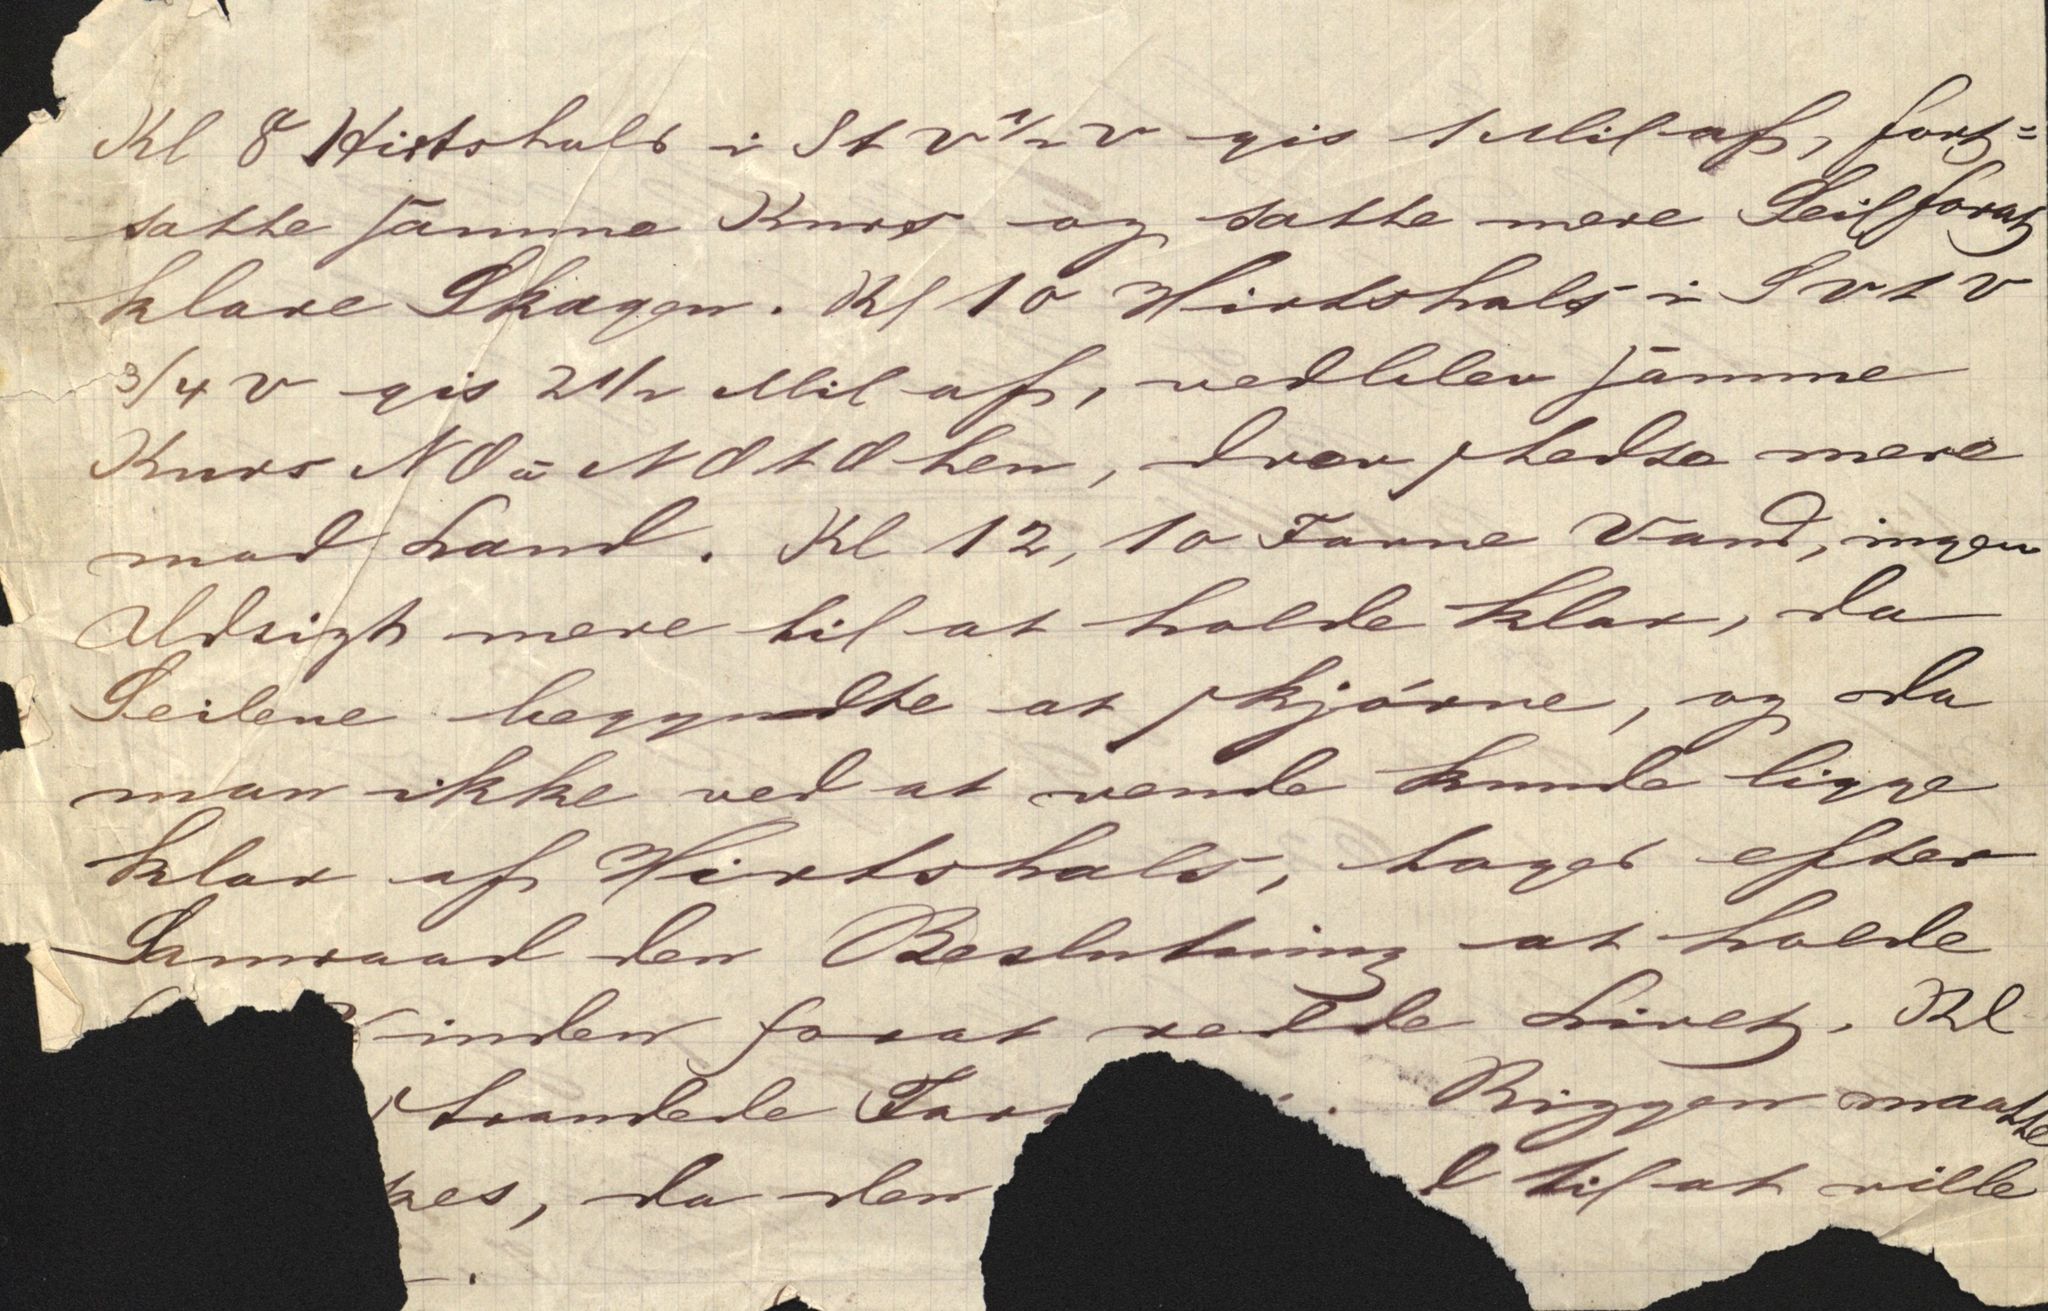 Kl 8 Hirtshals i S t V 1/2 V gis 1 Mil af, fort=
satte samme Kurs og satte mere Seil forat
klare Skagen. Kl 10 Hirtshals i S V t V
3/4 V gis 2 1/2 Mil af, vedblev samme
Kurs N O à N O t O hen, drev stedse mere
mod Land. Kl 12, 10 Favne Vand, ingen
Udsigt mere til at holde klar, da
Seilene begyndte at skjørne, og da
man ikke ved at vende kunde ligge
klar af Hirtshals, toges efter
Samraad den Beslutning at holde
Vinden forat redde Livet. Kl
strandede Far. Riggen maatte
kes, da den d til at ville